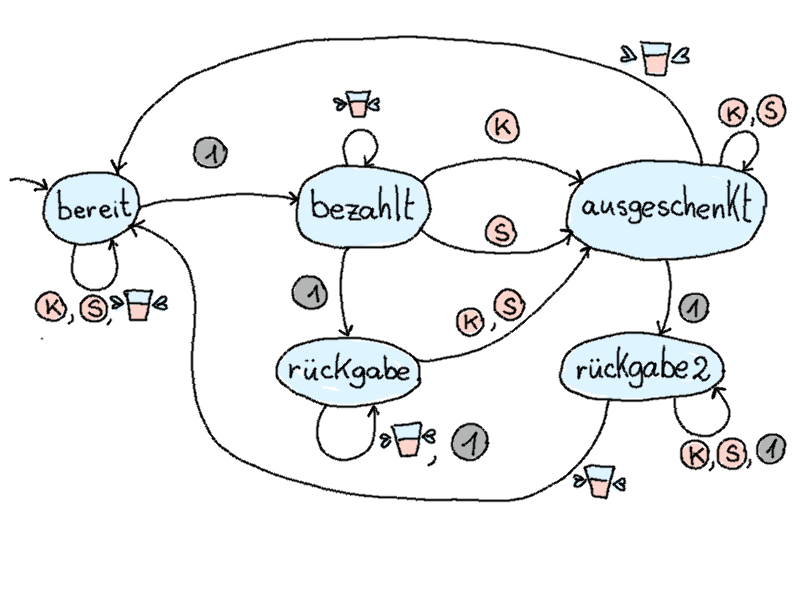 K
1
K, S
bereit
bezahlt
ausgeschenkt
S
K, S,
1
K, S
1
rückgabe
rückgabe2
, 1
K, S, 1